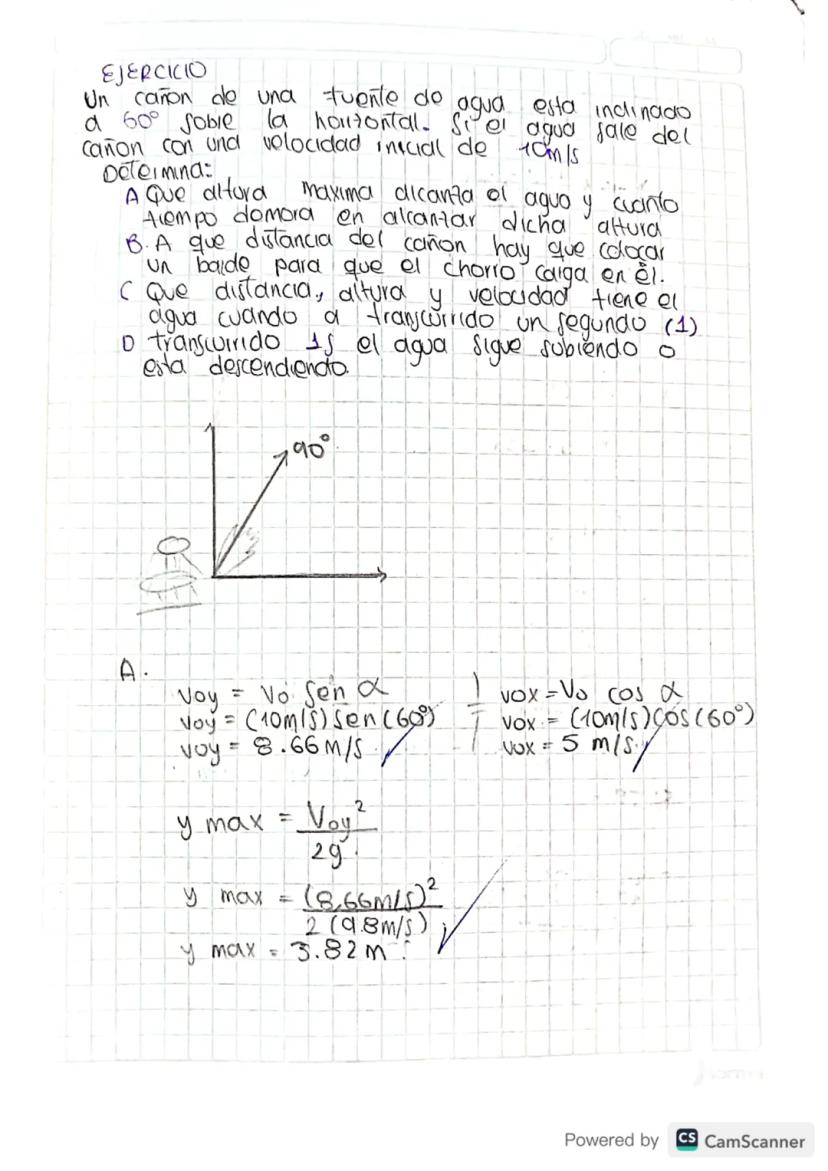 EJERCICIO
Un cañon de una fuente de agua esta inclinado
a 60° sobre la horizontal. Si el agua sale del
cañon con una velocidad inicial de 10m/s
Determina:
A Que altura maxima alcanza el agua y cuanto
tiempo domora en alcanzar dicha altura
B. A que distancia del cañon hay que colocar
un balde para que el chorro caiga en él.
C Que distancia, altura y velocidad tiene el
agua cuando a transcurrido un segundo (1)
D transcurrido 1s el agua sigue subiendo o
esta descendiendo.
90°
A.
Voy = Vo Sen α
Voy = (10m/s) Sen (60°)
Voy = 8.66 m/s
Vox = Vo cos α
Vox = (10m/s) cos (60°)
Vox = 5 m/s
y max = Voy²
2g
y max = (8,66m/s)²
2 (9.8m/s)
y max = 3.82 m
norma
Powered by CS CamScanner